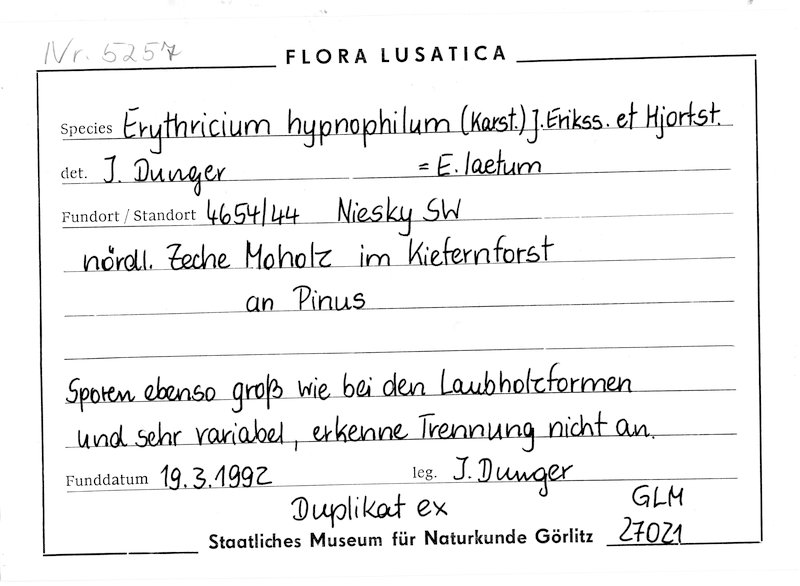 Nr. 5257
FLORA LUSATICA
Species Erythricium hypnophilum (Karst.) J.Erikss. et Hjortst.
det. I. Dunger = E. laetum
Fundort / Standort 4654/44 Niesky SW
nördl. Zeche Moholz im Kiefernforst
an Pinus
Sporen ebenso groß wie bei den Laubholzformen
und sehr variabel, erkenne Trennung nicht an.
Funddatum 19.3.1992 leg. I. Dunger
Duplikat ex GLM
Staatliches Museum für Naturkunde Görlitz 27021